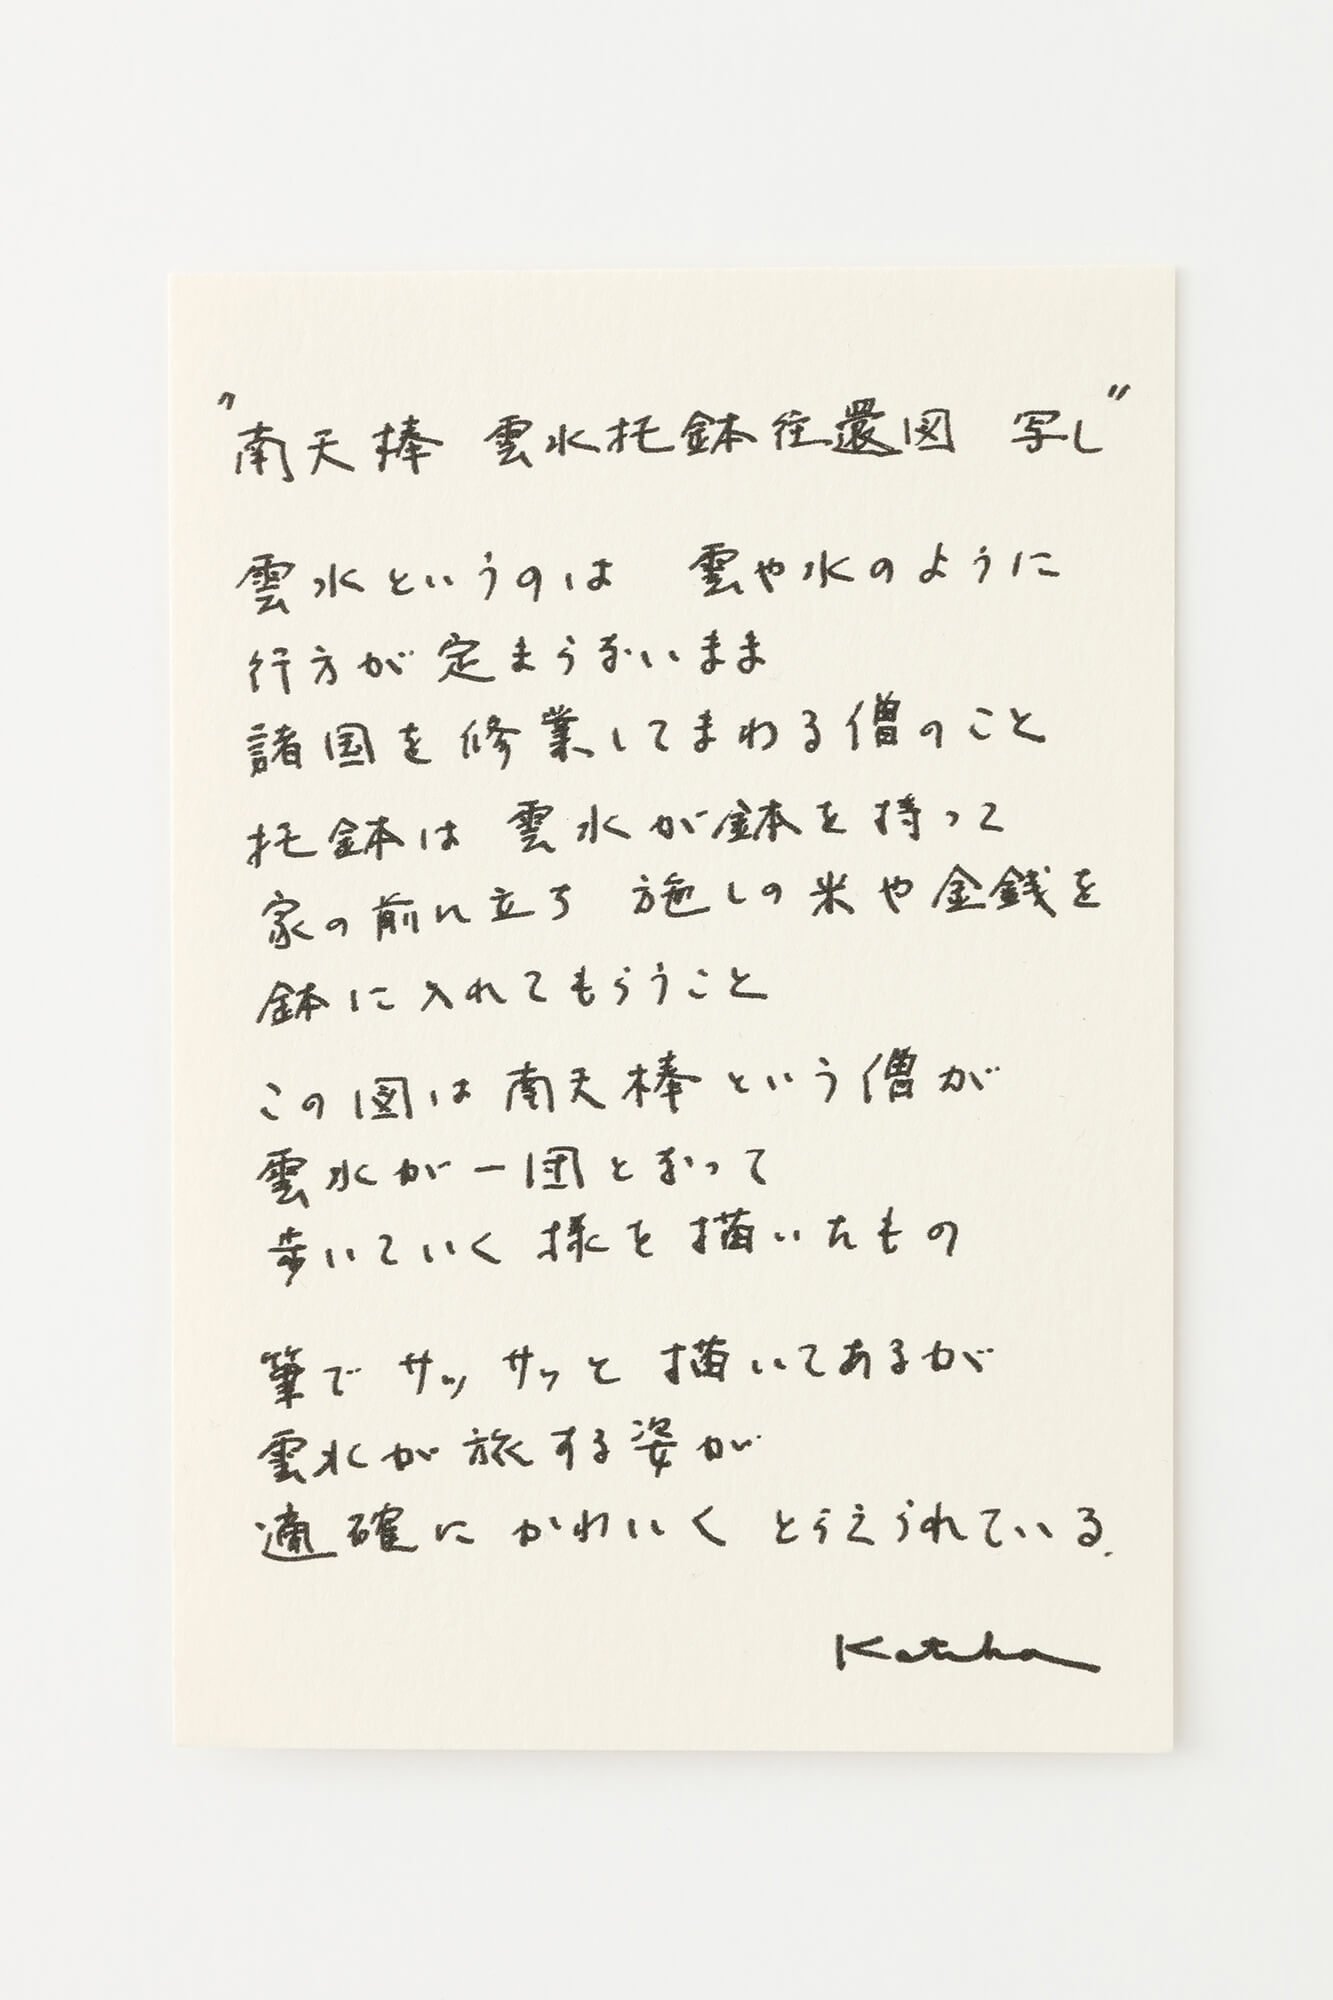 "南天棒 雲水托鉢往還図 写し"
雲水というのは 雲や水のように
行方が定まらないまま
諸国を修業してまわる僧のこと
托鉢は 雲水が鉢を持って
家の前に立ち 施しの米や金銭を
鉢に入れてもらうこと
この図は 南天棒という僧が
雲水が一団となって
歩いていく 様を 描いたもの
筆で サッサッと 描いてあるが
雲水が旅する姿が
適確に かわいく とらえられている.